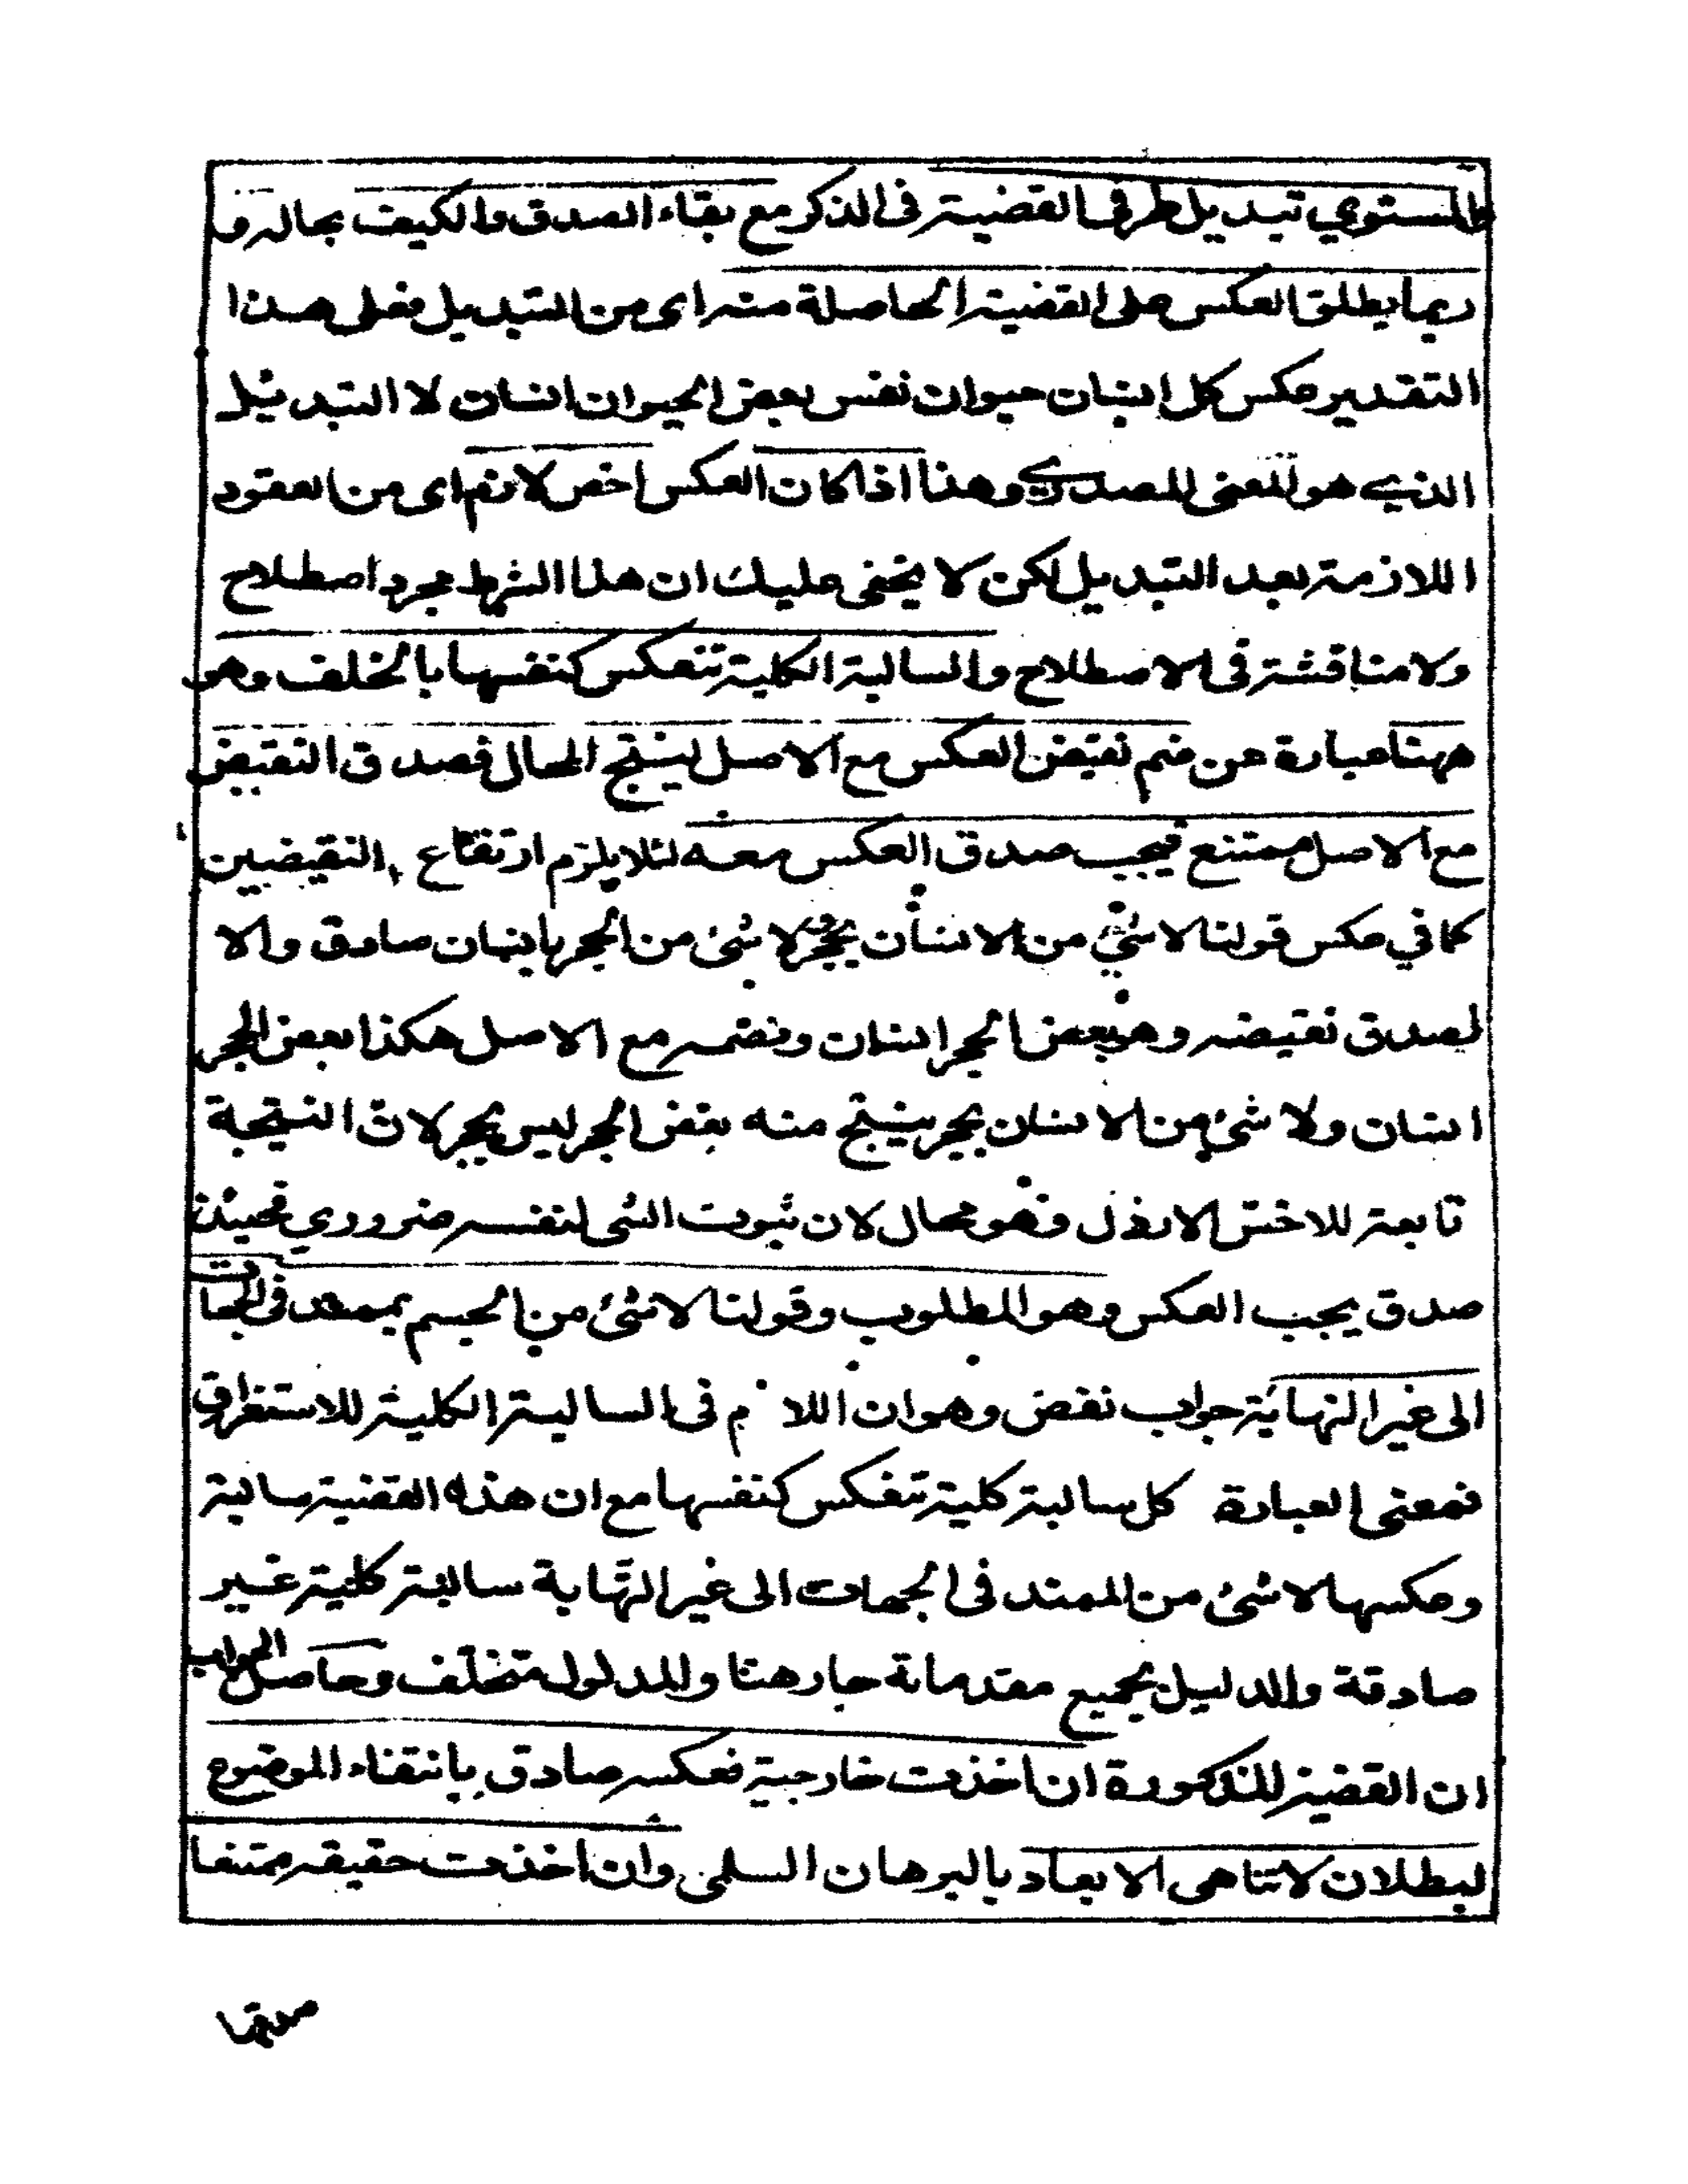 المستوي تبديل طرفي القضية في الذكر مع بقاء الصدق والكيف بحاله و
ربما يطلق العكس على القضية الحاصلة منه اى من التبديل فعلى هذا
التقدير عكس كل انسان حيوان نفس بعض الحيوان انسان لا التبديل
الذي هو المعنى المصدري وهذا اذا كان العكس اخص لازم اى من العقود
اللازمة بعد التبديل لكن لا يخفى عليك ان هذا الشرط مجرد اصطلاح
ولا مناقشة في الاصطلاح والسالبة الكلية تنعكس كنفسها بالخلف وهو
ههنا عبارة عن ضم نقيض العكس مع الاصل لينتج المحال فصدق النقيض
مع الاصل ممتنع فيجب صدق العكس معه لئلا يلزم ارتفاع النقيضين
كما في عكس قولنا لا شئ من الانسان بحجر لا شئ من الحجر بانسان صادق والا
لصدق نقيضه وهو بعض الحجر انسان ونضمه مع الاصل هكذا بعض الحجر
انسان ولا شئ من الانسان بحجر ينتج منه بعض الحجر ليس بحجر لان النتيجة
تابعة للاخس الارذل فهو محال لان ثبوت الشئ لنفسه ضروري فحينئذ
صدق يجب العكس وهو المطلوب وقولنا لا شئ من الجسم بممتد في الجهات
الى غير النهاية جواب نقض وهو ان اللا م في السالبة الكلية للاستغراق
فمعنى العبارة كل سالبة كلية تنعكس كنفسها مع ان هذه القضية سالبة
وعكسها لا شئ من الممتد في الجهات الى غير النهاية سالبة كلية غير
صادقة والدليل بجميع مقدماته جار هنا والمدلول متخلف وحاصل الجواب
ان القضية المذكورة ان اخذت خارجية فعكسه صادق بانتفاء الموضوع
لبطلان لا تناهى الابعاد بالبرهان السلمى وان اخذت حقيقه